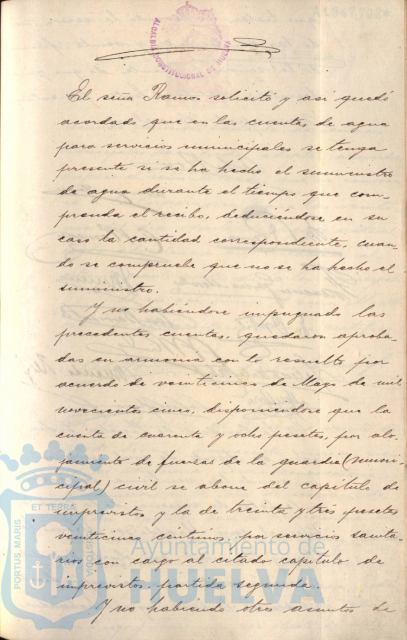 ALCALDIA CONSTITUCIONAL DE HUELVA
El señor Ramos solicitó y así quedó
acordado que en las cuentas de agua
para servicios municipales se tenga
presente si se ha hecho el suministro
de agua durante el tiempo que com-
prenda el recibo, deduciendose en su
caso la cantidad correspondiente, cuan-
do se compruebe que no se ha hecho el
suministro.
Y no habiéndose impugnado las
precedentes cuentas, quedaron aproba-
das en armonia con lo resuelto por
acuerdo de veinticinco de Mayo de mil
novecientos cinco, disponiendose que la
cuenta de cuarenta y ocho pesetas, por alo-
jamiento de fuerzas de la guardia (muni-
cipal) civil se abone del capitulo de
imprevistos y la de treinta y tres pesetas
veinticinco centimos por servicios sanita-
rios con cargo al citado capitulo de
imprevistos partida segunda.
Y no habiendo otros asuntos de
PORTUS MARIS ET TERRÆ CUSTODIA
Ayuntamiento de
HUELVA